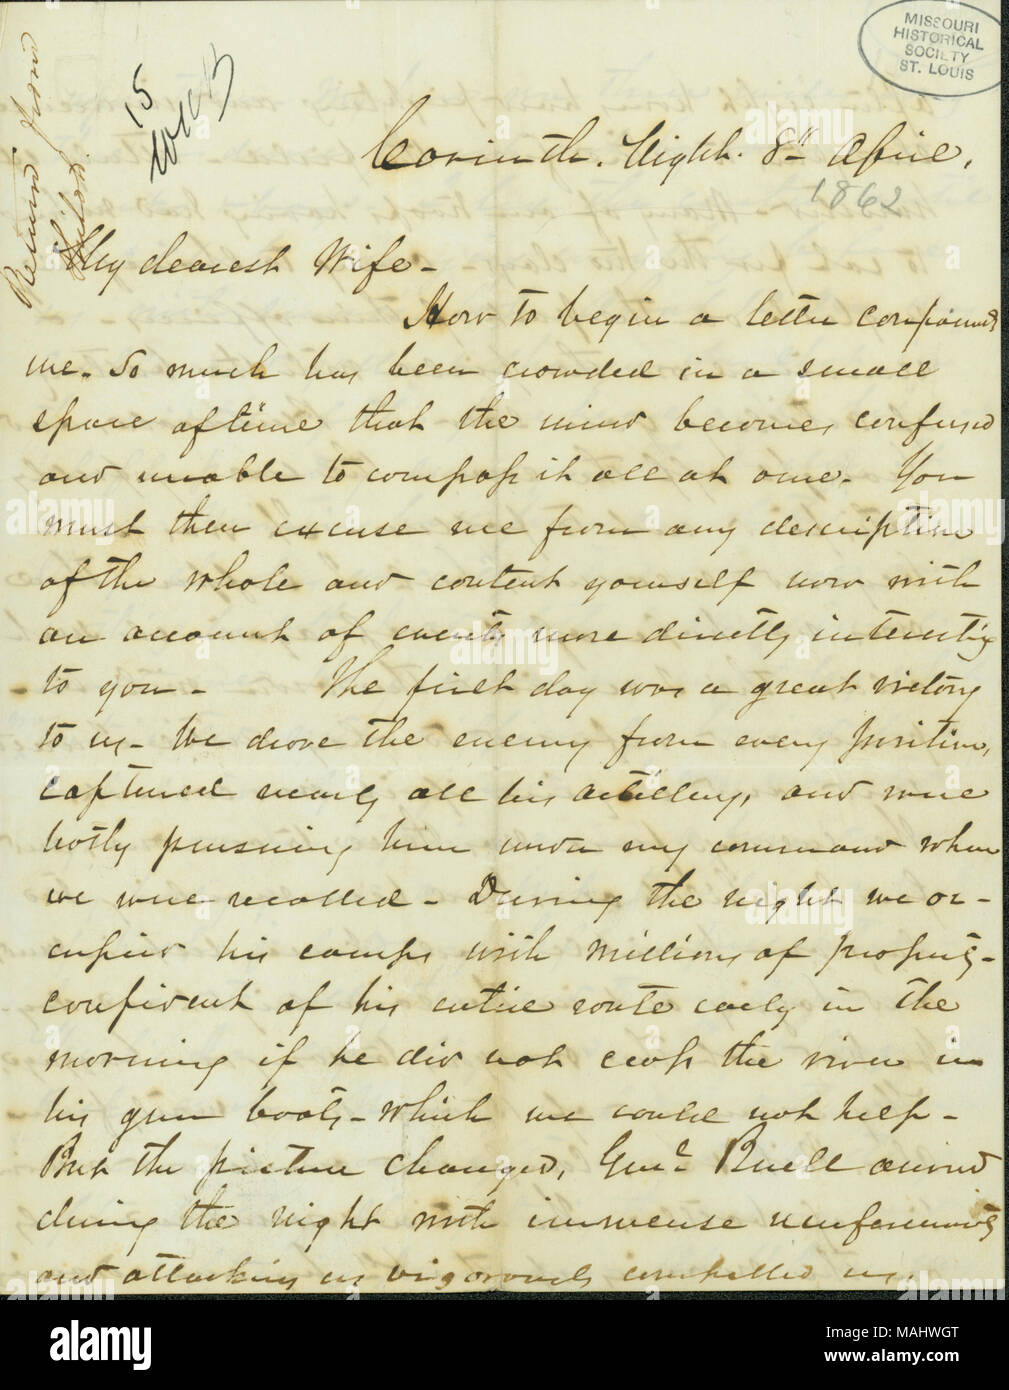 MISSOURI
HISTORICAL
SOCIETY
ST. LOUIS
Return from
Shiloh
15
Corinth. Night. 8th April.
1862
My dearest Wife-
How to begin a letter confounds
me. So much has been crowded in a small
space of time that the mind becomes confused
and unable to compass it all at once. You
must then excuse me from any description
of the whole and content yourself now with
an account of events more directly interesting
to you- The first day was a great victory
to us- We drove the enemy from every position,
captured nearly all his artillery, and were
hotly pursuing him under my command when
we were recalled- During the night we oc-
cupied his camps with millions of property-
confident of his entire route early in the
morning if he did not cross the river in
his gun boats- which we could not help-
But the picture changed, Genl Buell arrived
during the night with immense reinforcements
and attacking us vigorously compelled us,
alamy
Image ID: MAHWGT
www.alamy.com